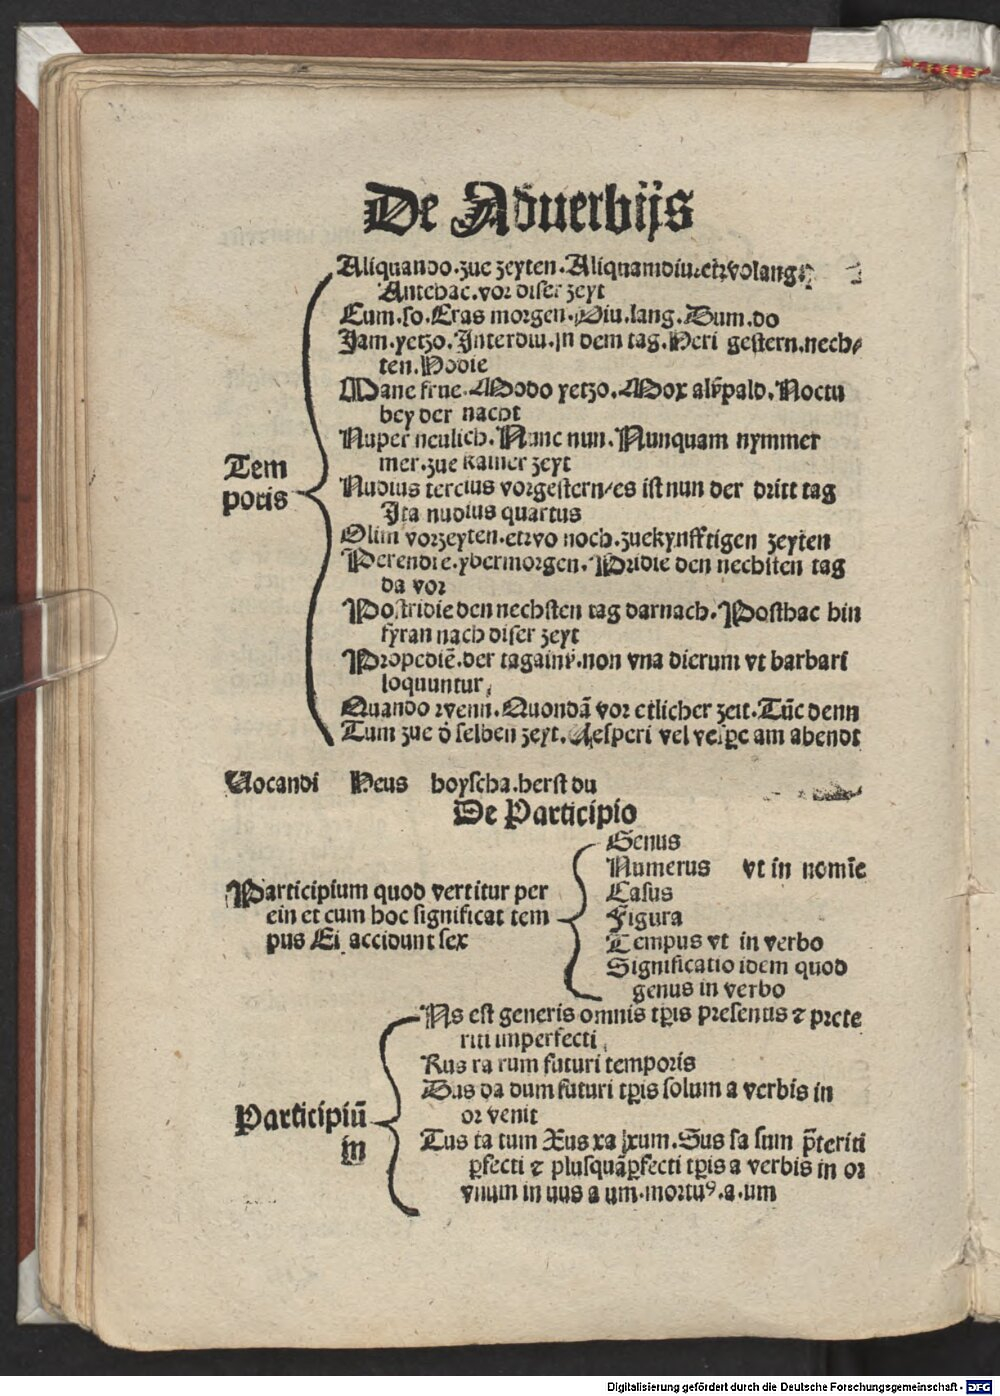 De Aduerbijs
Aliquando.zue zeyten.Aliquamdiu.etzvolang
Antehac.vor diser zeyt
Cum.so.Cras morgen.Diu.lang.Dum.do
Jam.yetzo.Interdiu.jn dem tag.Heri gestern.nech/
ten.Hodie
Mane frue.Modo yetzo.Mox alspald.Noctu
bey der nacht
Nuper neulich.Nunc nun.Nunquam nymmer
mer.zue kainer zeyt
Nudius tercius vorgestern/es ist nun der dritt tag
Ita nudius quartus
Olim vorzeyten.etzvo noch.zuekynfftigen zeyten
Perendie.ybermorgen.Pridie den nechsten tag
da vor
Postridie den nechsten tag darnach.Posthac hin
fyran nach diser zeyt
Propediē.der tag ainͤ.non vna dierum vt barbari
loquuntur,
Quando wenn.Quondā vor etlicher zeit.Tūc denn
Tum zue d̕ selben zeyt.Vesperi vel vespe am abendt
Tem
poris
Vocandi Heus boyscha.herst du
De Participio
Participium quod vertitur per
ein et cum hoc significat tem
pus Ei accidunt sex
Genus
Numerus vt in nomīe
Casus
Figura
Tempus vt in verbo
Significatio idem quod
genus in verbo
Participiū
in
Ns est generis omnis tꝑis presentis ⁊ prete
riti imperfecti
Rus ra rum futuri temporis
Dus da dum futuri tꝑis solum a verbis in
or venit
Tus ta tum Xus xa xum.Sus sa sum p̄teriti
ꝑfecti ⁊ plusquāꝑfecti tꝑis a verbis in or
vnum in uus a um.mortuꝰ.a.um
Digitalisierung gefördert durch die Deutsche Forschungsgemeinschaft - DFG